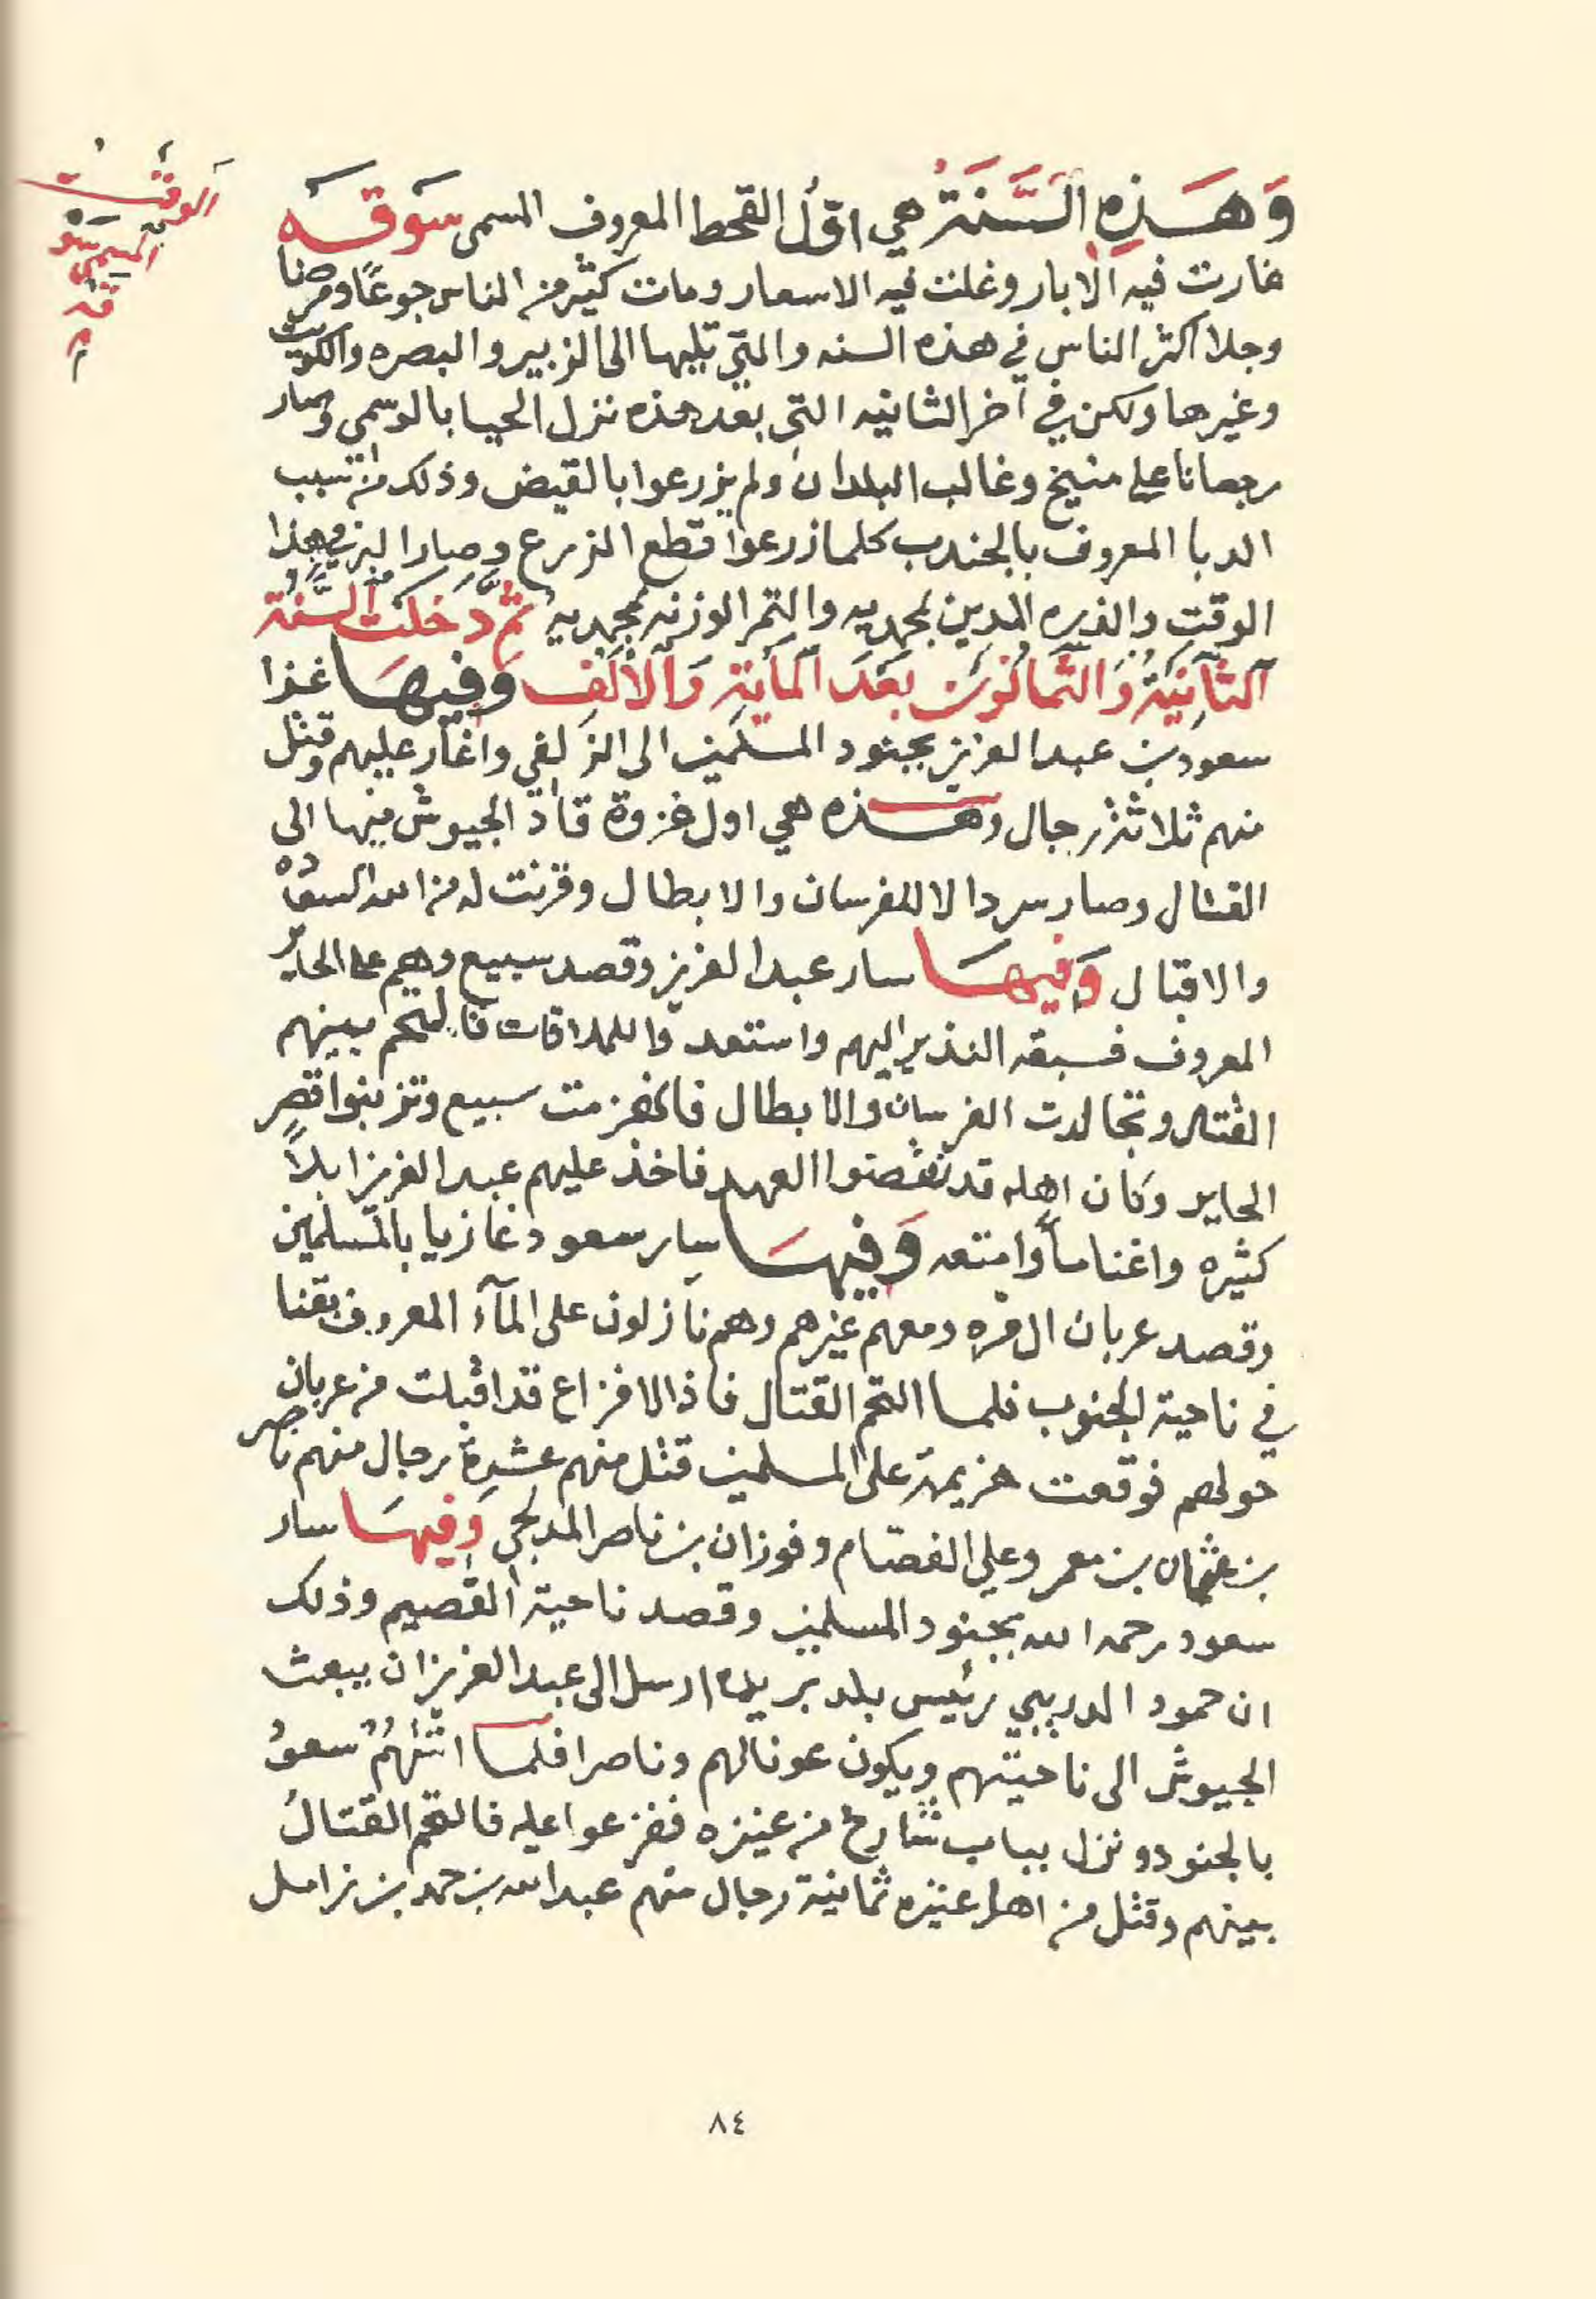 وَهَذِهِ السَّنَةُ هي اوّلُ القحط المعروف المسمى سَوقَه
غارت فيه الابار وغلت فيه الاسعار ومات كثير من الناس جوعًا ومرضا
وجلا اكثر الناس في هذه السنه والتي تليها الى الزبير والبصره والكويت
وغيرها ولكن في آخر الثانيه التي بعد هذه نزل الحيا بالوسمي وصار
رجعانا على منيخ وغالب البلدان ولم يزرعوا بالقيض وذلك من سبب
الدبا المعروف بالجندب كلما زرعوا قطع الزرع وصار البر في هذا
الوقت والذره المدين بمحمديه والتمر الوزنه بمحمديه ثُمَّ دَخَلَت السَّنَةُ
الثَّانِيَةُ وَالثَّمَانُونَ بَعْدَ المَايَةِ وَالأَلْفِ وَفِيهَا غزا
سعود بن عبد العزيز بجنود المسلمين الى الزلفي واغار عليهم وقتل
منهم ثلاثة رجال وهذه هي اول غزوة قاد الجيوش فيها الى
القتال وصار سردالا للفرسان والابطال وقرنت له من الله السعاده
والاقبال وَفِيهَا سار عبد العزيز وقصد سبيع وهم على الحاير
المعروف فسبقه النذير اليهم واستعدوا للملاقات فالتحم بينهم
القتال وتجالدت الفرسان والابطال فانهزمت سبيع وتزبنوا قصر
الحاير وكان اهله قد نقضوا العهد فاخذ عليهم عبد العزيز ابلاً
كثيره واغناماً وامتعه وَفِيهَا سار سعود غازيا بالمسلمين
وقصد عربان ال مره ومعهم غيرهم وهم نازلون على المآء المعروف بقنا
في ناحية الجنوب فلما التحم القتال فاذا الافزاع قد اقبلت من عربان
حولهم فوقعت هزيمة على المسلمين قتل منهم عشرة رجال منهم ناصر
بن عثمان بن معمر وعلي الفصام وفوزان بن ناصر المدلجي وَفِيهَا سار
سعود رحمه الله بجنود المسلمين وقصد ناحية القصيم وذلك
ان حمود الدريبي رئيس بلد بريده ارسل الى عبد العزيز ان يبعث
الجيوش الى ناحيتهم ويكون عونا لهم وناصرا فلما اتاهم سعود
بالجنود ونزل بباب شارخ من عنيزه ففزعوا عليه فالتحم القتالُ
بينهم وقتل من اهل عنيزه ثمانية رجال منهم عبدالله بن حمد بن زامل
٨٤